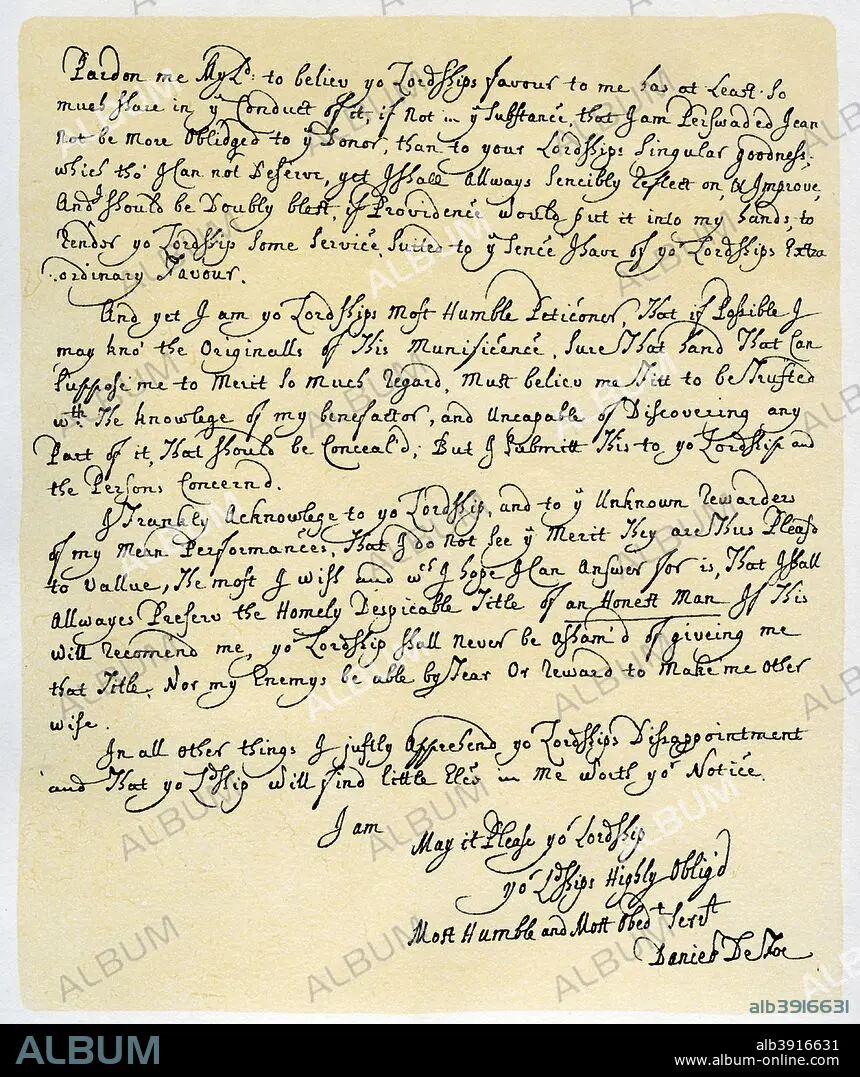 Pardon me My Ld: to believ yor Lordships favour to me has at Least so
much share in ye Conduct of it, if Not in ye Substance, that I am Perswaded I can
not be More Oblidged to ye Donor, than to your Lordships Singular goodness,
which tho' I Can not Deserve, yet I shall Allways Sencibly Reflect on, & Improve,
And I should be Doubly blest, if Providence would put it into my hands, to
Render yor Lordship Some Service, Suited to ye Sence I have of yor Lordships Extra
ordinary Favour.
And yet I am yor Lordships Most Humble Peticoner, That if Possible I
may kno' the Originalls of This Munificence, Sure That hand That Can
Suppose me to Merit So Much Regard, Must believ me Fitt to be Trusted
wth The knowlege of my benefactor, and Uncapable of Discovering any
Part of it, That should be Conceal'd; But I Submitt This to yor Lordship and
the Persons Concernd.
I Frankly Acknowlege to yor Lordship, and to ye Unknown Rewarders
of my Mean Performances, That I do not See ye Merit They are Thus Pleasd
to Vallue, The most I wish and wch I hope I Can Answer for is, That I shall
Allwayes Preserv the Homely Despicable Title of an Honest Man If This
will recomend me, yor Lordship shall never be asham'd of giveing me
that Title, Nor my Enemys be able by Fear Or Reward to Make me Other
wise.
In all other things I justly Apprehend yor Lordships Disappointment
and That yor Ldship will find little Else in me worth yor Notice.
I am
May it Please yor Lordship
yor Ldships Highly Oblig'd
Most Humble and Most Obedt Servt
Daniel De Foe
ALBUM
alb3916631
ALBUM
alb3916631
www.album-online.com